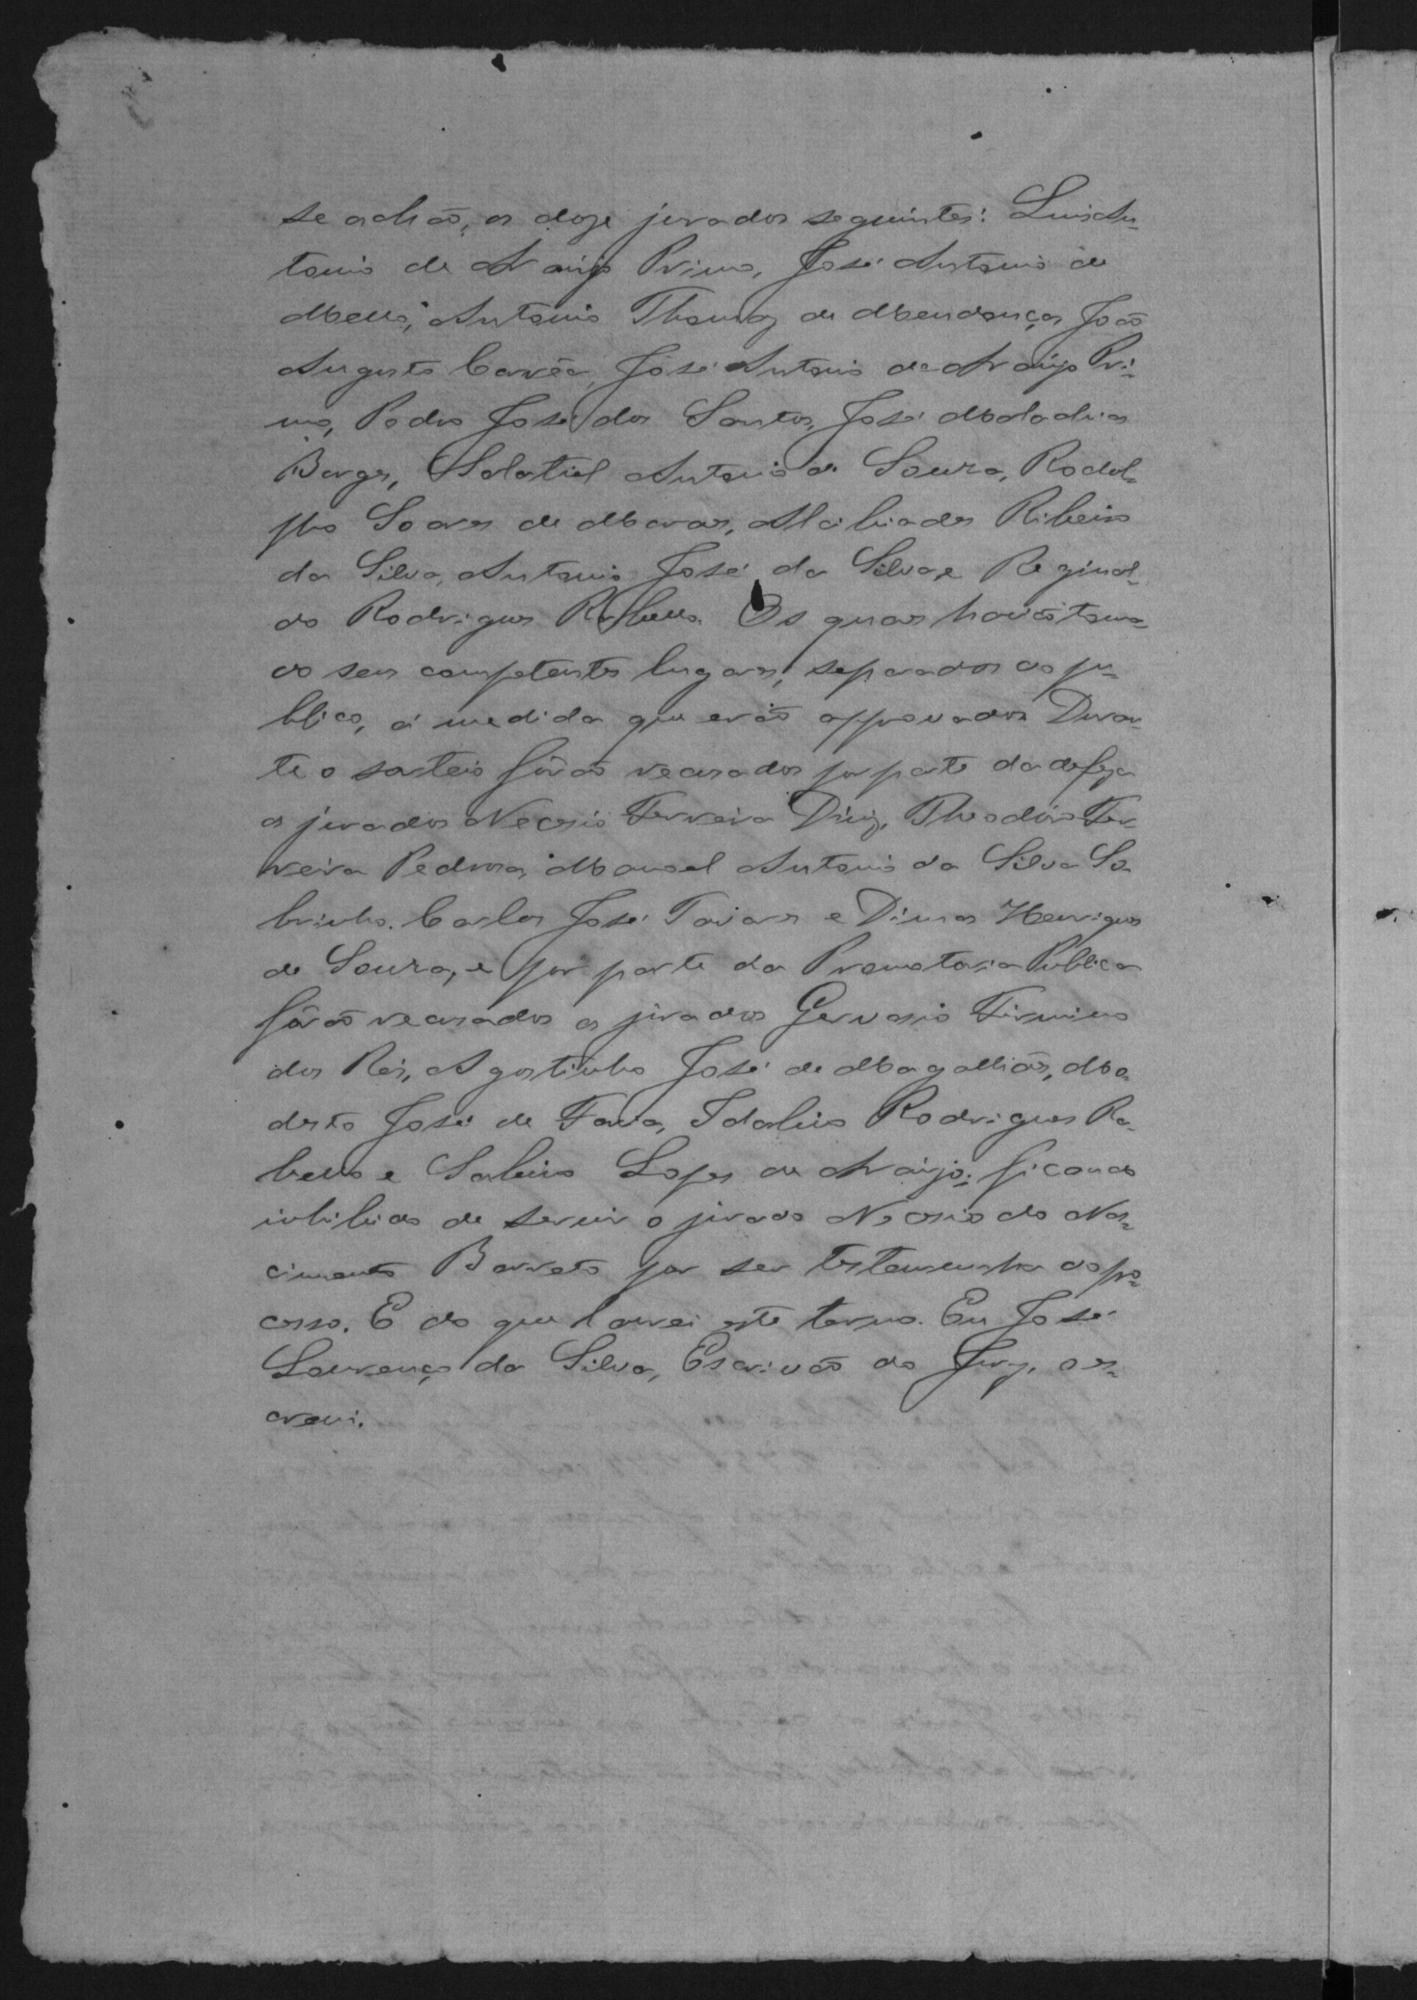 se achão, os doze jurados seguintes: Luis An-
tonio de Araujo Primo, José Antonio de
Mello, Antonio Thomaz de Mendonça, João
Augusto Corrêa, José Antonio de Araujo Pri-
mo, Pedro José dos Santos, José Malachias
Borges, Salatiel Antonio de Souza, Rodol-
pho Soares de Moraes, Alcibiades Ribeiro
da Silva, Antonio José da Silva, e Reginal-
do Rodrigues Rabello. Os quaes haviãotoma-
do seus competentes lugares, separados do pu-
blico, á medida que erão approvados. Duran-
te o sorteio fôrão recusados por parte da defeza
os jurados Necesio Ferreira Diniz, Theodóro Fer-
reira Pedrosa, Manoel Antonio da Silva So-
brinho, Carlos José Tavares e Dimas Henriques
de Souza, e por parte da Promotoria Publica
fôrão recusados os jurados Gervasio Firmino
dos Reis, Agostinho José de Magalhães, Mo-
desto José de Faria, Idalino Rodrigues Ra-
bello e Sabino Lopes de Araujo; ficando
inhibido de servir o jurado Necesio do Nas-
cimento Barreto por ser testemunha do pro-
cesso. E do que lavrei este termo. Eu José
Lourenço da Silva, Escrivão do Jury, o es-
crevi.